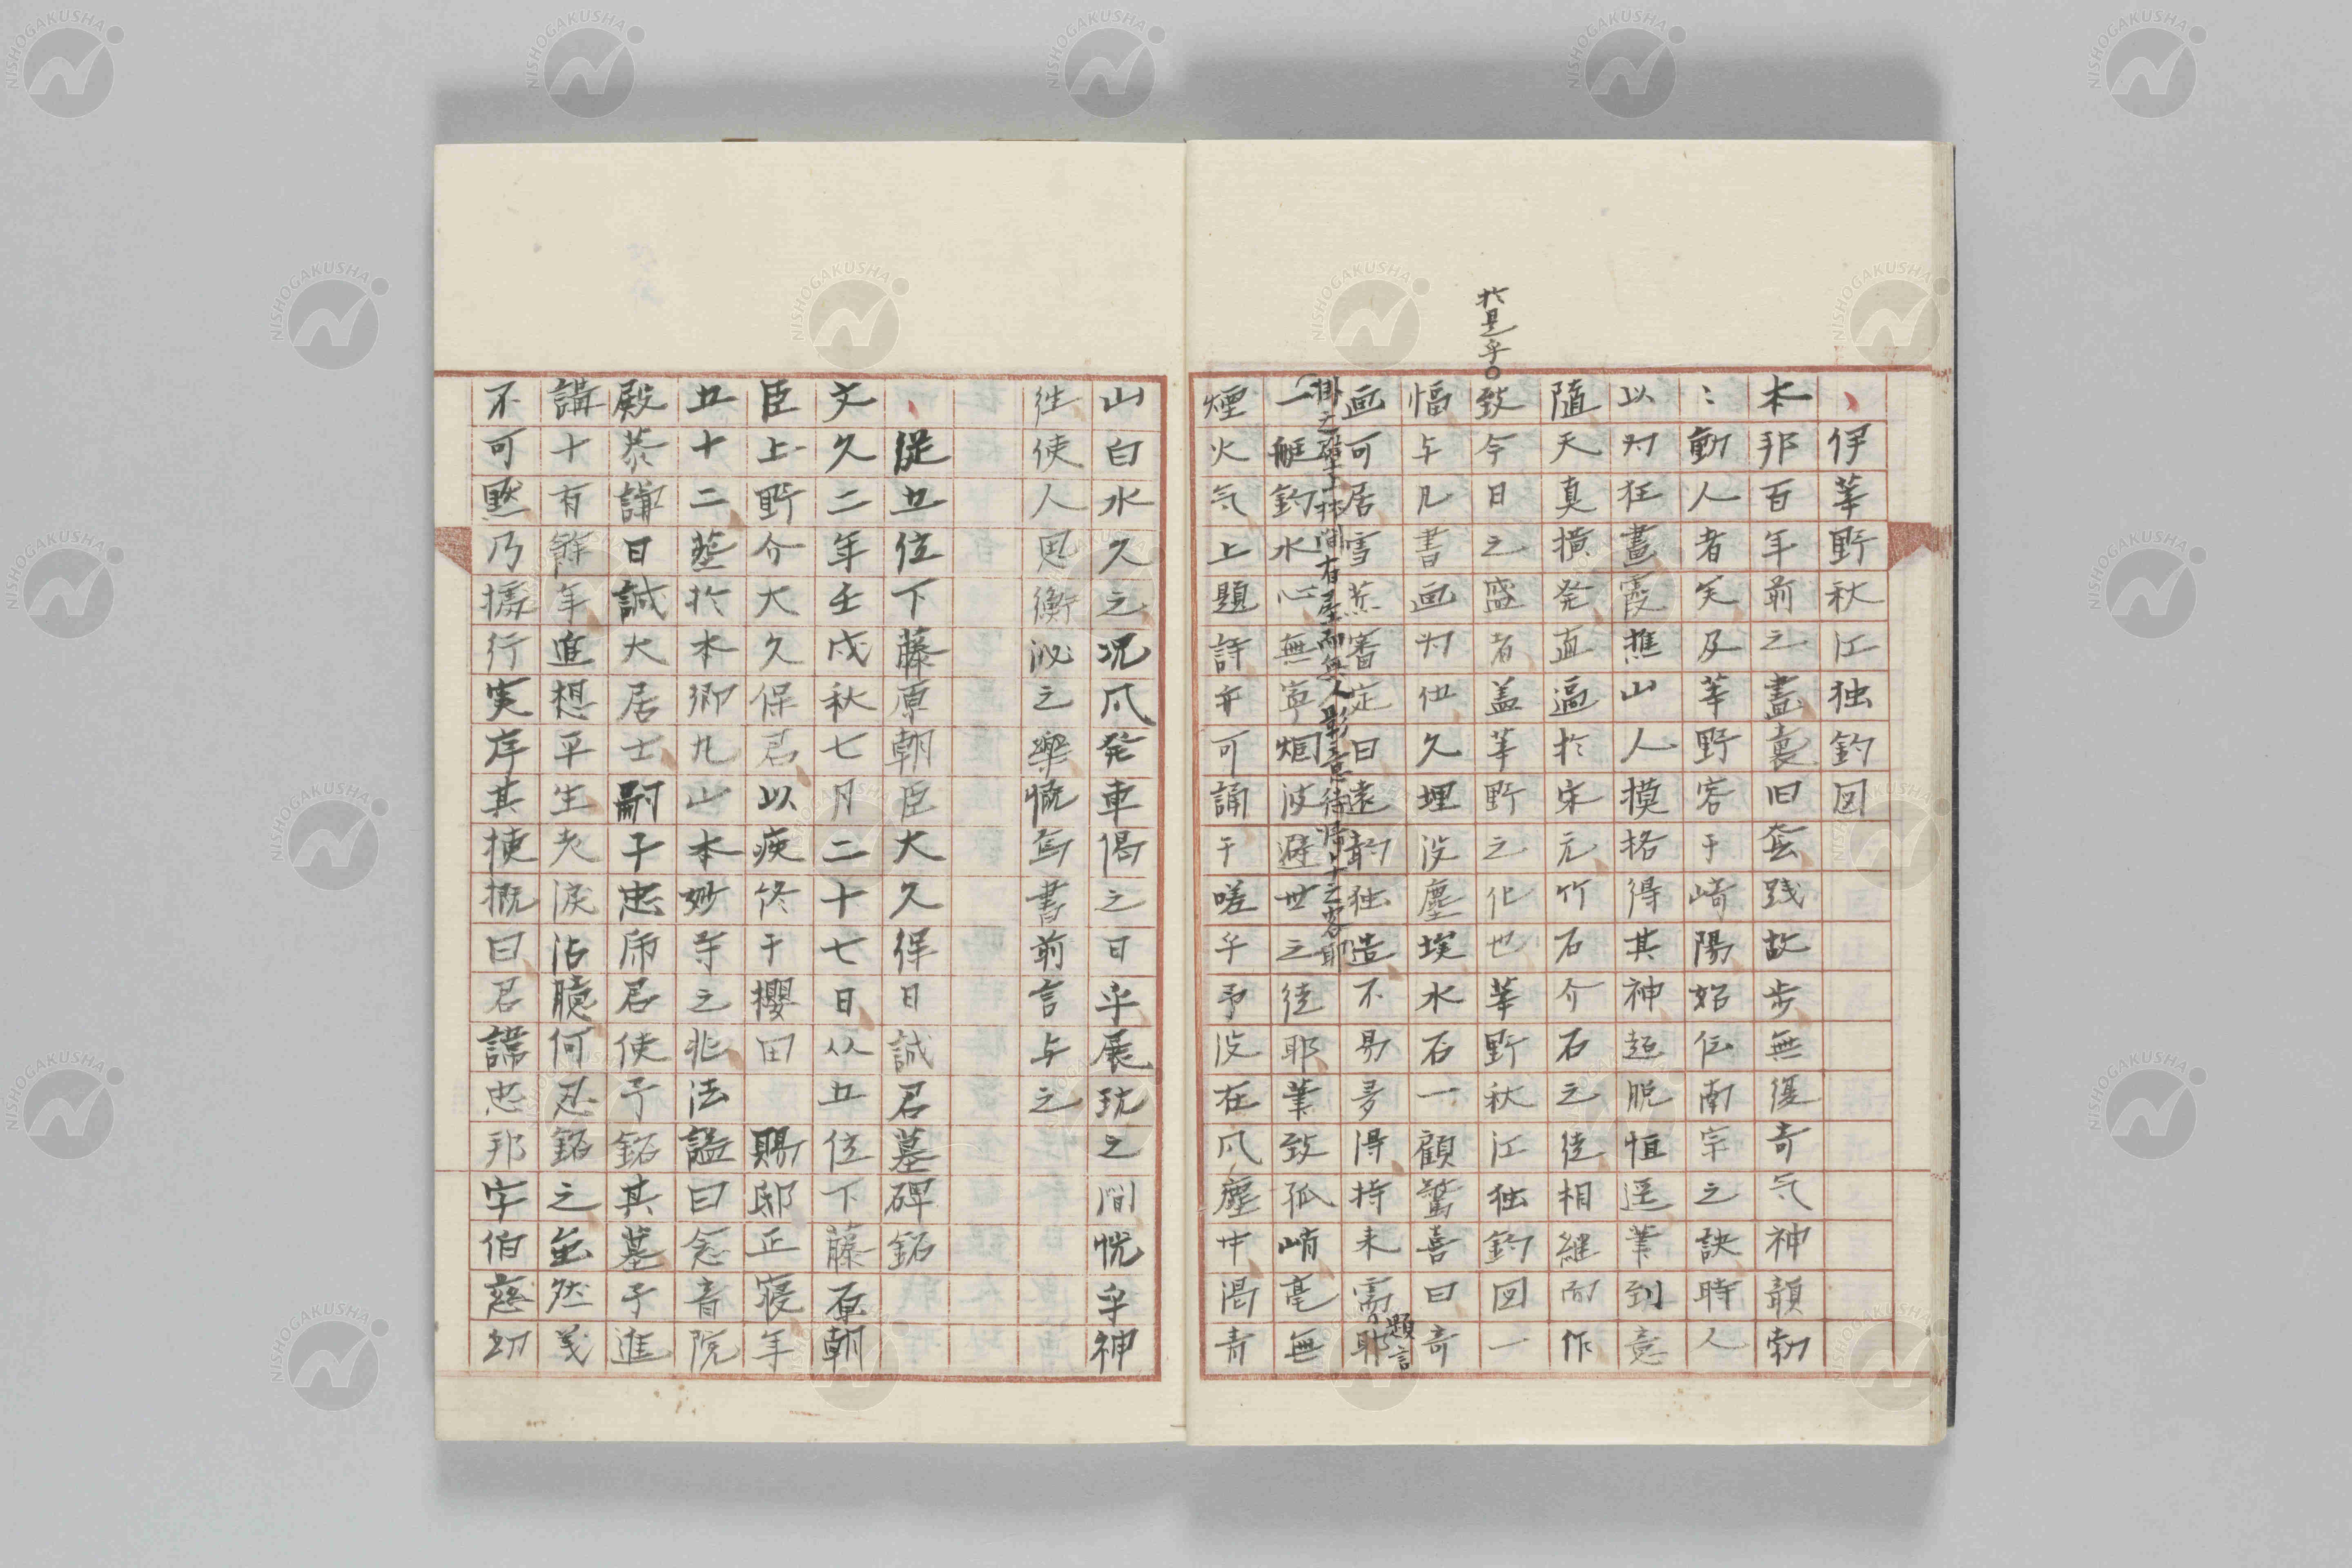 伊莘野秋江独釣図
本邦百年前之畫裏旧套践故歩無復奇气神韻勃
〻動人者矣及莘野客于崎陽始伝南宗之訣時人
以为狂畫霞樵山人模格得其神超脱恒逕筆到意
随天真横発直逼於宋元竹石介石之徒相継而作
於是乎
致今日之盛者盖莘野之化也莘野秋江独釣図一
幅与几書画为伍久埋没塵埃水石一顧驚喜曰奇
画可居雪蕉審定曰遠韵独造不易多得持来需題言耶
掛之壁上林間有屋而無人影意待帰之客耶
一艇釣水心無寧烟波避世之徒耶筆致孤峭毫無
煙火气上題詩亦可誦于嗟乎予没在風塵中渇青
山白水久之况风発車偈之日乎展玩之間恍乎神
往使人思衡泌之樂慨焉書前言与之
従五位下藤原朝臣大久保日誠君墓碑銘
文久二年壬戌秋七月二十七日从五位下藤原朝
臣上野介大久保君以疾終于櫻田 賜邸正寝年
五十二葬於本郷丸山本妙寺之兆法謚曰念音院
殿恭謙日誠大居士嗣子忠席君使予銘其墓予進
講十有餘年進想平生老涙沾臆何忍銘之並然義
不可黙乃據行実序其梗概曰君諱忠邦字伯慈幼